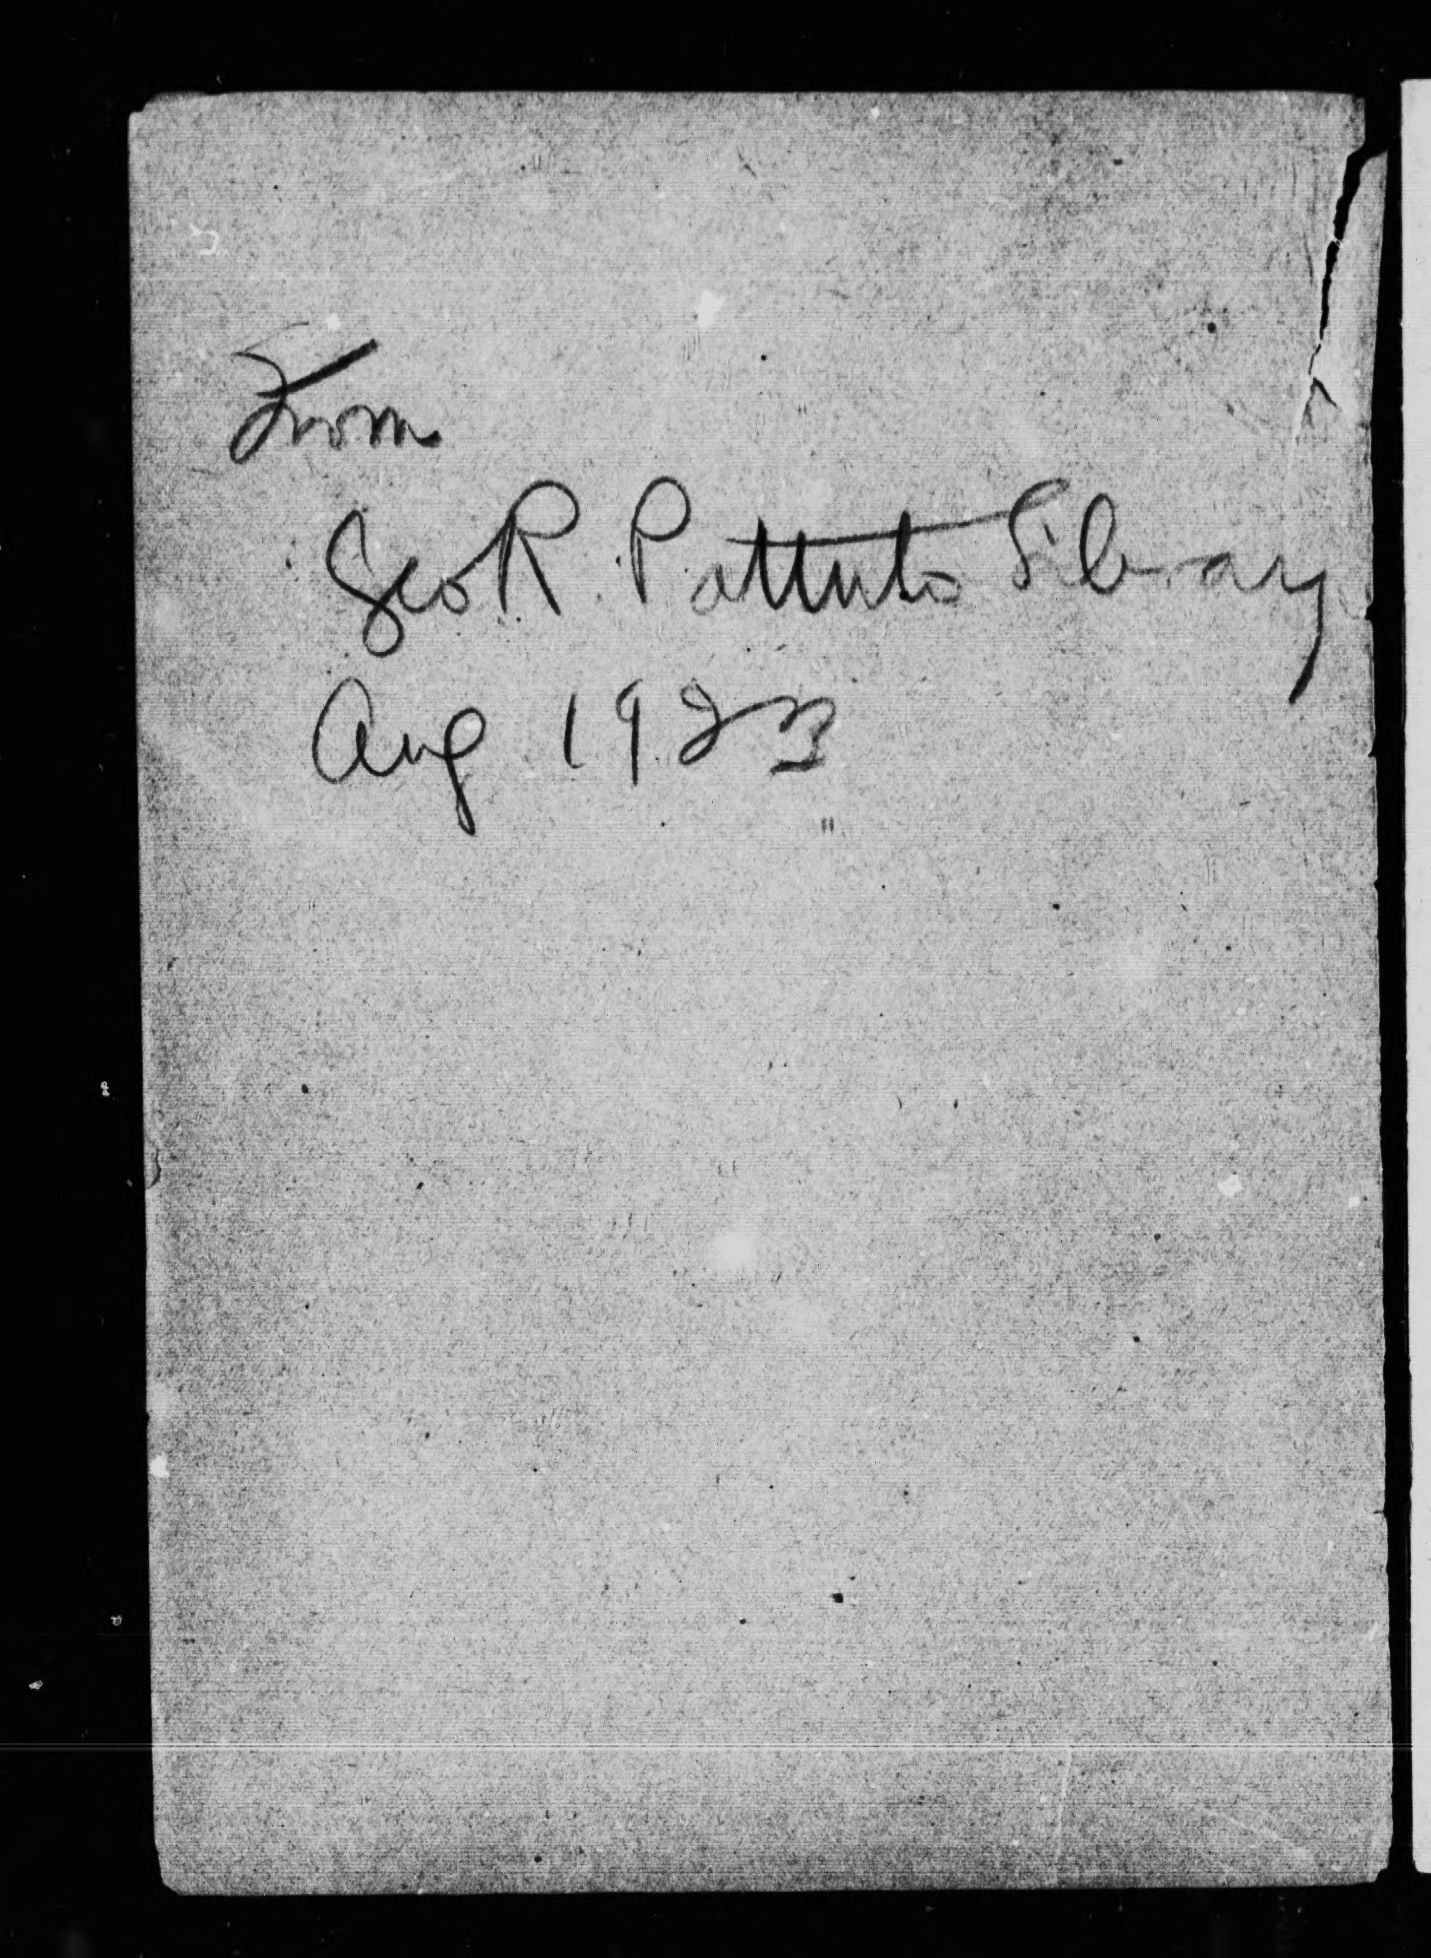 From
Geo R. Pattullo Library
Aug 1923